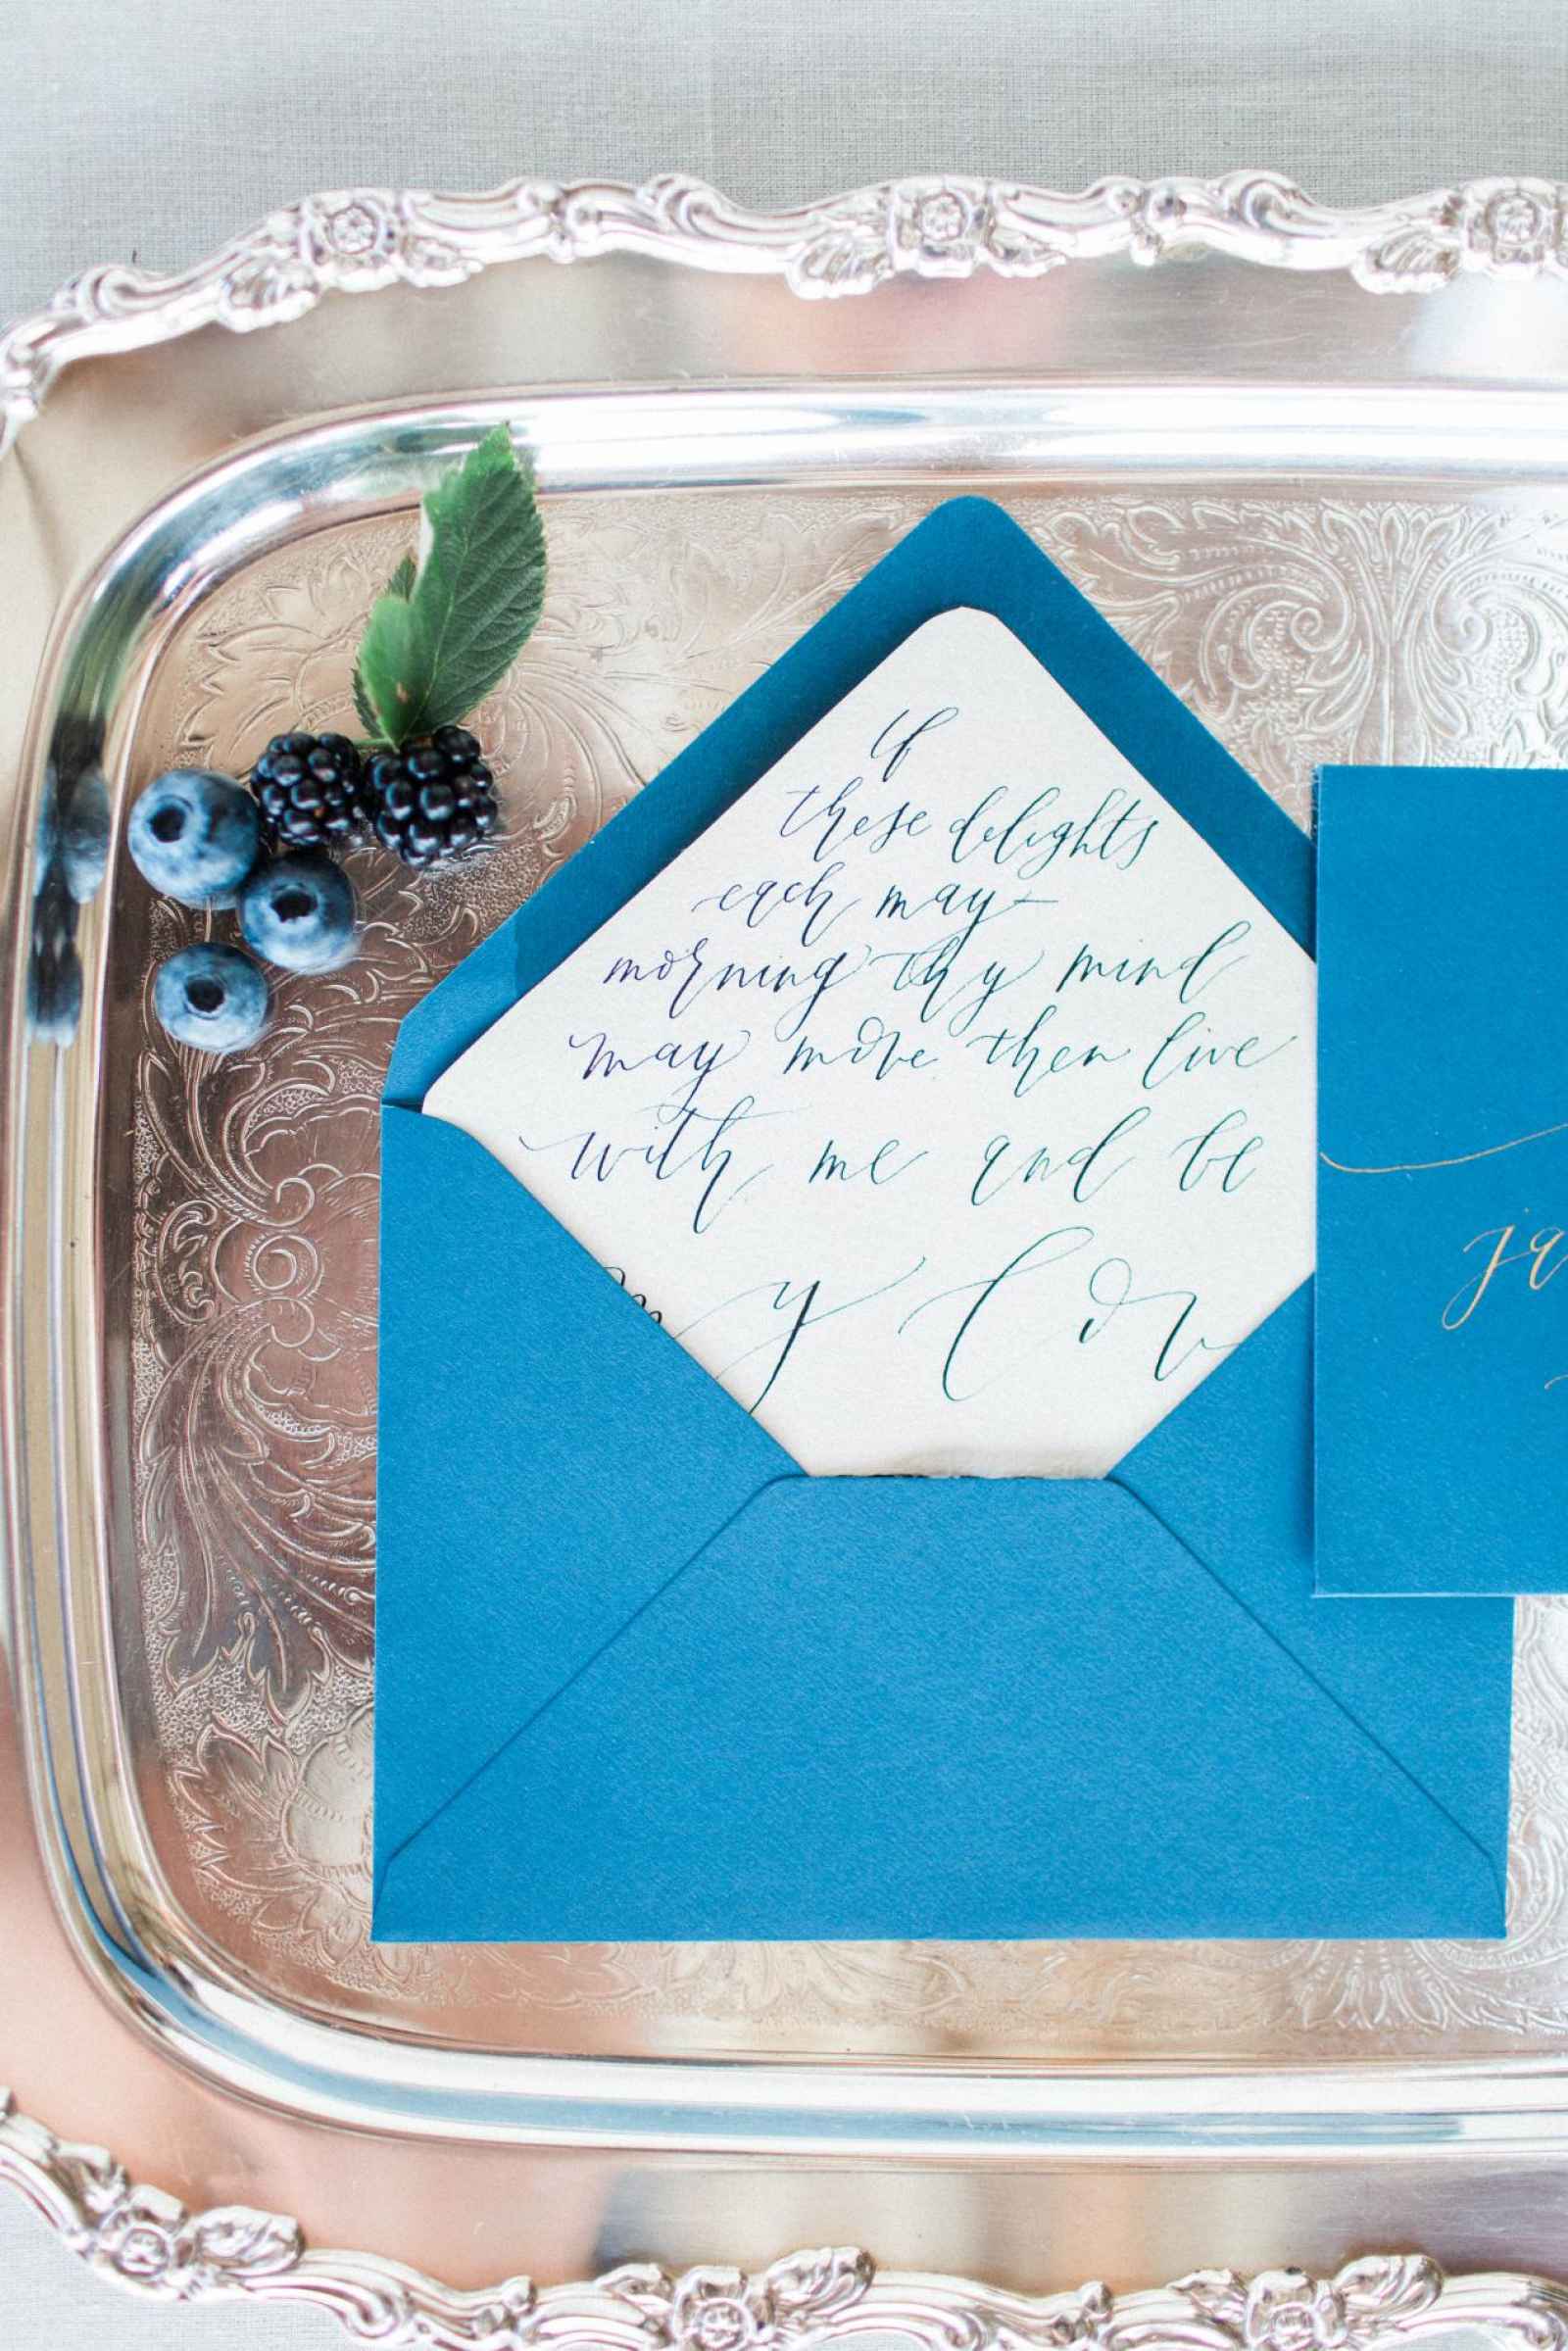 If
these delights
each may
morning thy mind
may move then live
with me and be
my lov
ja